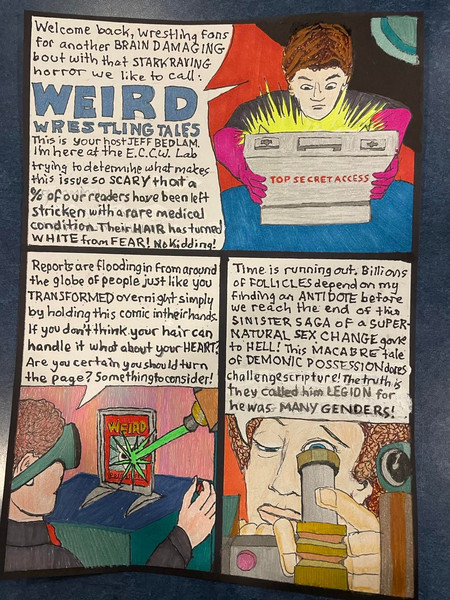 Welcome back, wrestling fans
for another BRAIN DAMAGING
bout with that STARK RAVING
horror we like to call:
WEIRD
WRESTLING TALES
This is your host JEFF BEDLAM.
I'm here at the E.C.C.W. Lab
trying to determine what makes
this issue so SCARY that a
% of our readers have been left
stricken with a rare medical
condition. Their HAIR has turned
WHITE from FEAR! No Kidding!
TOP SECRET ACCESS
Reports are flooding in from around
the globe of people just like you
TRANSFORMED overnight simply
by holding this comic in their hands.
If you don't think your hair can
handle it what about your HEART?
Are you certain you should turn
the page? Something to consider!
WEIRD
Time is running out. Billions
of FOLLICLES depend on my
finding an ANTIDOTE before
we reach the end of this
SINISTER SAGA of a SUPER-
NATURAL SEX CHANGE gone
to HELL! This MACABRE tale
of DEMONIC POSSESSION dares
challenge scripture! The truth is
they called him LEGION for
he was MANY GENDERS!